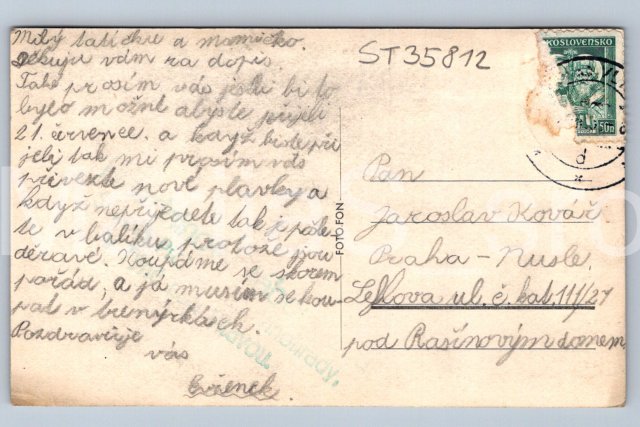 Milý tatíčku a mamičko.
Děkuju vám za dopis.
Také prosím vás jestli by to
bylo možné abyste přijeli
21. červenec. a když budete při
jeli tak mi prosím vás
převezte nové plavky a
když nepřijedete tak je pošle
te v balíku protože jsou
děravé. Koupáme se skorem
pořád, a já musím se kou
pat v trenýrkách.
Pozdravuje
vás
Evženek.
ST35812
KOSLOVENSKO
FOTO FON
Pan
Jaroslav Kovář.
Praha - Nusle.
ul. č. kat. 111/27
pod Rašínovým domem